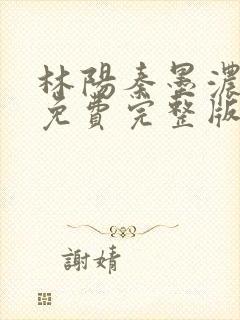 林陽秦墨濃
免費完整版
謝婧